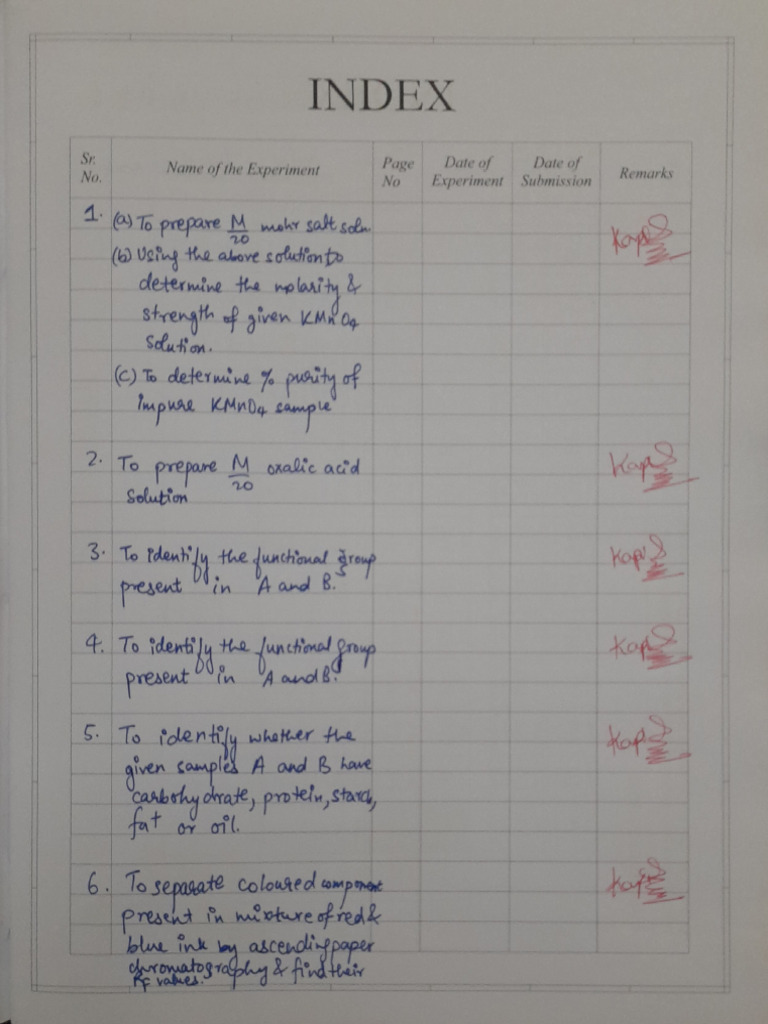 INDEX
Sr. No. Name of the Experiment Page No Date of Experiment Date of Submission Remarks
1. (a) To prepare M/20 mohr salt soln
(b) Using the above solution to
determine the molarity &
strength of given KMnO4
Solution.
(C) To determine % purity of
impure KMnO4 sample
2. To prepare M/20 oxalic acid
Solution
3. To identify the functional group
present in A and B.
4. To identify the functional group
present in A and B.
5. To identify whether the
given samples A and B have
carbohydrate, protein, starch,
fat or oil.
6. To separate coloured component
present in mixture of red &
blue ink by ascending paper
chromatography & find their
RF values.